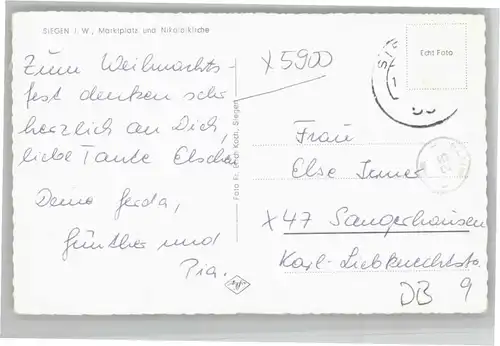 SIEGEN i. W., Marktplatz und Nikolaikirche
Zum Weihnachts-
fest denken sehr
herzlich an Dich,
liebe Tante Elschen
Deine Gerda,
Günther und
Pia.
Foto Fr. Koch, Siegen
x5900
Echt Foto
Frau
Else Irmer
x 47 Sangerhausen
Karl-Liebknechtstr.
9
DB